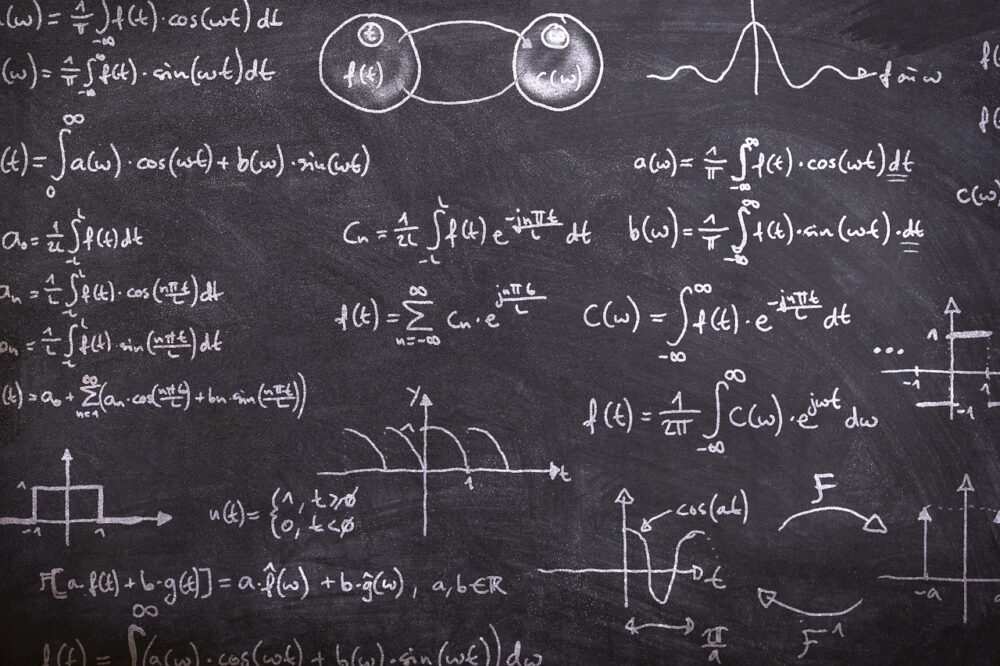 (ω) = 1/π ∫_{-∞} f(t)·cos(ωt) dt
(ω) = 1/π ∫_{-∞}^{∞} f(t)·sin(ωt) dt
t
f(t)
C(ω)
(t) = ∫_0^∞ a(ω)·cos(ωt) + b(ω)·sin(ωt)
a(ω) = 1/π ∫_{-∞}^{∞} f(t)·cos(ωt) dt
C(ω)
a₀ = 1/2L ∫_{-L}^{L} f(t) dt
Cn = 1/2L ∫_{-L}^{L} f(t) e^{-jnπt/L} dt
b(ω) = 1/π ∫_{-∞}^{∞} f(t)·sin(ωt)·dt
an = 1/L ∫_{-L}^{L} f(t)·cos(nπt/L) dt
f(t) = Σ_{n=-∞}^{∞} Cn·e^{jnπt/L}
C(ω) = ∫_{-∞}^{∞} f(t)·e^{-jnπt/L} dt
bn = 1/L ∫_{-L}^{L} f(t)·sin(nπt/L) dt
... -1 1 -1
(t) = a₀ + Σ_{n=1}^{∞} (an·cos(nπt/L) + bn·sin(nπt/L))
f(t) = 1/2π ∫_{-∞}^{∞} C(ω)·e^{jωt} dω
y 1 1 t
1 -1 1
u(t) = {1, t≥0
0, t<0
cos(at)
t
π/a
F
F⁻¹
-a
F[a·f(t) + b·g(t)] = a·f̂(ω) + b·ĝ(ω), a,b∈ℝ
f(t) = ∫^∞ (a(ω)·cos(ωt) + b(ω)·sin(ωt)) dω